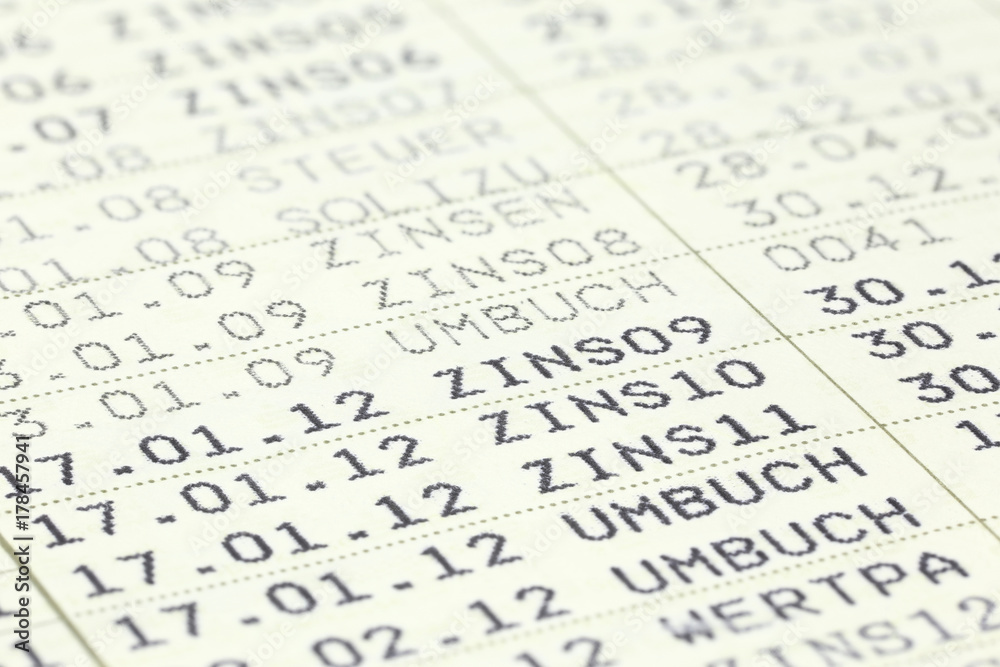 06 ZINS05
.07 ZINS06 29.12
.08 ZINS07 28.12.07
01.08 STEUER 28.12.07
01.08 SOLIZU 28.12.07
.01.09 ZINSEN 28.04.0
3.01.09 ZINS08 30.12.
3.01.09 UMBUCH 0041
17.01.12 ZINS09 30.1
17.01.12 ZINS10 30.
17.01.12 ZINS11 30.
17.01.12 UMBUCH 1
02.12 UMBUCH
WERTPA
ZINS12
Adobe Stock | #178457941